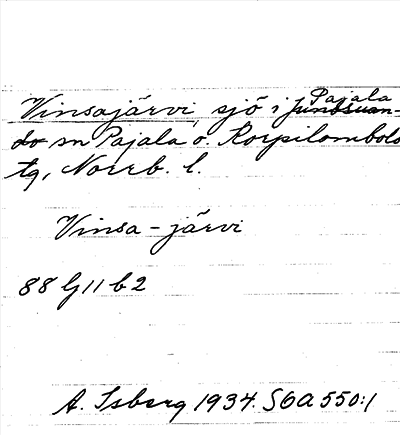 Vinsajärvi, sjö i Junosuan- Pajala
do sn Pajala o. Korpilombolo
tg, Norrb. l.
Vinsa-järvi
88 G 11 b 2
A. Isberg 1934. SGA 550:1